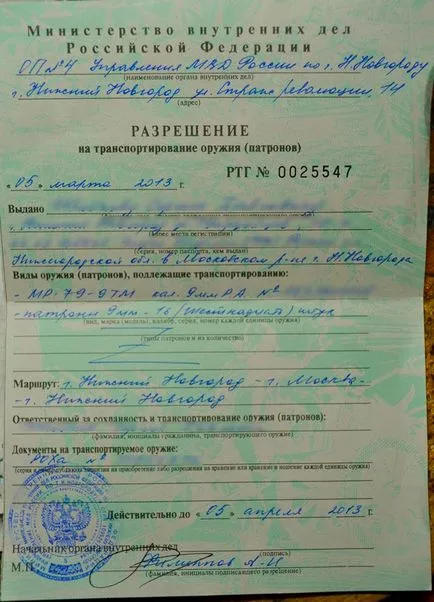 Министерство внутренних дел
Российской Федерации
ОП №4 Управления МВД России по г. Н.Новгороду
(наименование органа внутренних дел)
г. Нижний Новгород ул. Страж революции, 14
(адрес)
РАЗРЕШЕНИЕ
на транспортирование оружия (патронов)
РТГ № 0025547
« 05 » марта 2013 г.
Выдано
(адрес места регистрации)
(серия, номер паспорта, кем выдан)
Нижегородской обл. в Московском р-не г. Н.Новгорода
Виды оружия (патронов), подлежащие транспортированию:
- МР-79-9ТМ кал. 9мм Р.А. №
- патроны 9мм - 16 (шестнадцать) штук
(вид, марка (модель), калибр, серия, номер каждой единицы оружия)
(типы патронов и их количество)
Маршрут: г. Нижний Новгород - г. Москва -
- г. Нижний Новгород
Ответственный за сохранность и транспортирование оружия (патронов):
(фамилия, инициалы гражданина, транспортирующего оружие)
Документы на транспортируемое оружие:
РОХа №
на приобретение либо разрешения на хранение или хранение и ношение каждой единицы оружия)
Действительно до « 05 » апреля 2013 г.
Начальник органа внутренних дел
(подпись)
М.П. Филиппов А.И
(фамилия, инициалы подписавшего разрешение)